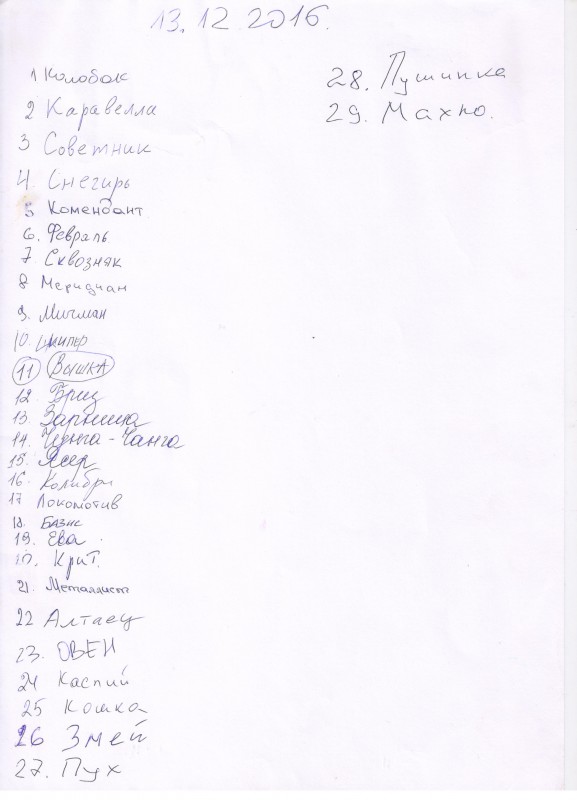 13.12.2016.
1 Колобок
2 Каравелла
3 Советник
4. Снегирь
5 Комендант
6. Февраль
7 Сквозняк
8 Меридиан
9. Мичман
10. Шкипер
11 Вышка
12. Бриз
13. Зарница
14. Чунга-Чанга
15.
16 Колибри
17 Локомотив
18. Базис
19. Ева.
20. Крит.
21. Металлист
22 Алтаец
23. ОВЕН
24 Каспий
25 Кошка
26 Змей
27. Пух
28. Пушинка
29. Махно.